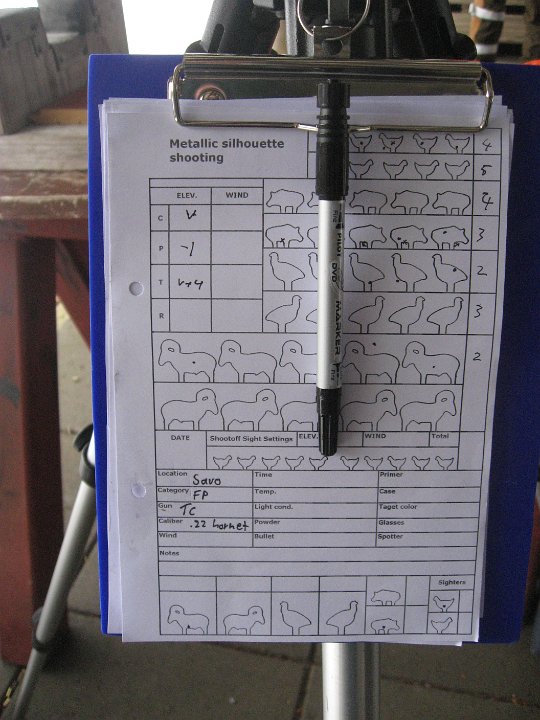 Metallic silhouette
shooting
4
5
ELEV. WIND
4
C
3
P -1
2
T
R
3
2
PILOT
DVD MARKER
DATE Shootoff Sight Settings ELEV. WIND Total
Location Savo Time Primer
Category FP Temp. Case
Gun TC Light cond. Taget color
Caliber .22 hornet Powder Glasses
Wind Bullet Spotter
Notes
Sighters